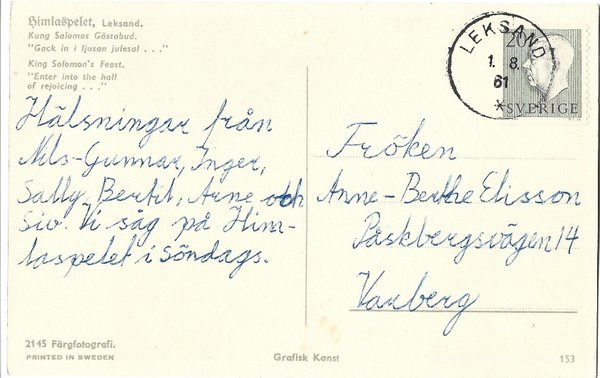 Himlaspelet, Leksand.
Kung Salomos Gästabud.
"Gack in i ljusan julesal . . ."
King Solomon's Feast.
"Enter into the hall
of rejoicing . . ."
LEKSAND
1. 8.
61
20
SVERIGE
Hälsningar från
Nils-Gunnar, Inger,
Sally, Bertil, Arne och
Siv. Vi såg på Him-
laspelet i Söndags.
Fröken
Anne-Berthe Elisson
Påskbergsvägen 14
Varberg
2145 Färgfotografi.
PRINTED IN SWEDEN
Grafisk Konst
153